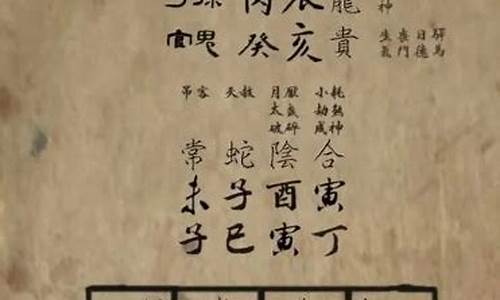 丙辰龍
官鬼 癸亥貴
神
生氣 喪門 日德 驛馬
弔客 天赦 月厭 小耗
太歲 劫煞
破碎 成神
常蛇陰合
未子酉寅
子巳寅丁